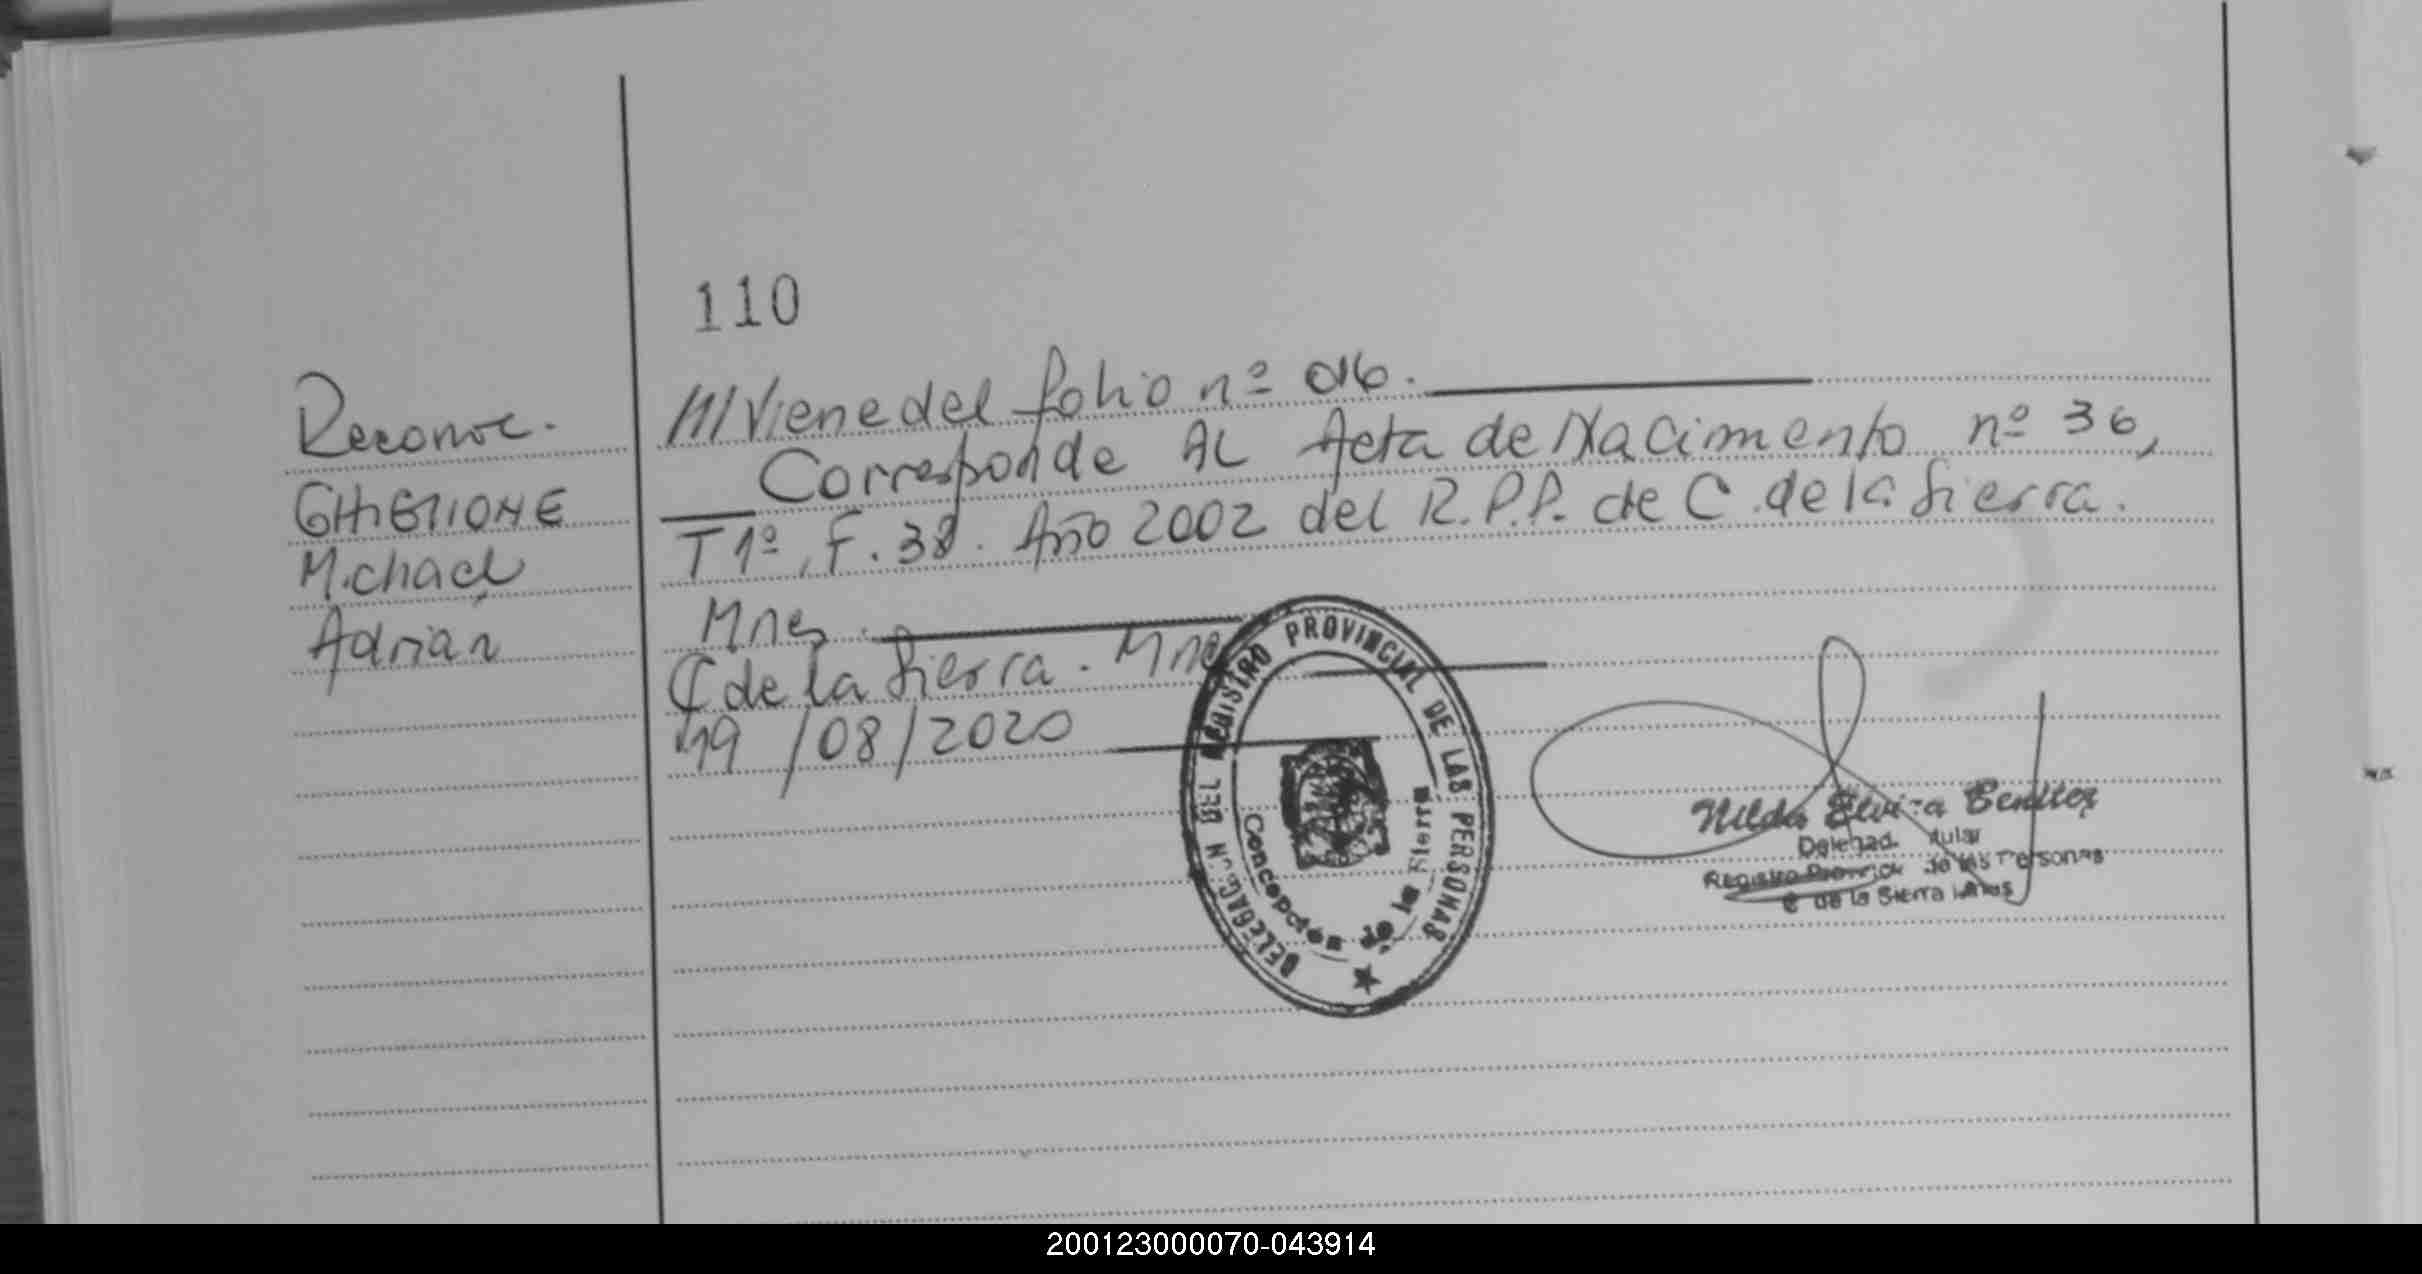 110
Reconoc.
GHIGLIONE
Michael
Adrián
/// Viene del folio nº 016.
Corresponde AL Acta de Nacimiento nº 36,
T 1º, F. 38. Año 2002 del R.P.P. de C. de la Sierra.
Mnes.
C de la Sierra. Mnes
19/08/2020
DELEGACION DEL REGISTRO PROVINCIAL DE LAS PERSONAS
Concepción de la Sierra
Nilda Elvira Benitez
Delegad. Titular
Registro Provincial de las Personas
C de la Sierra Mnes
200123000070-043914